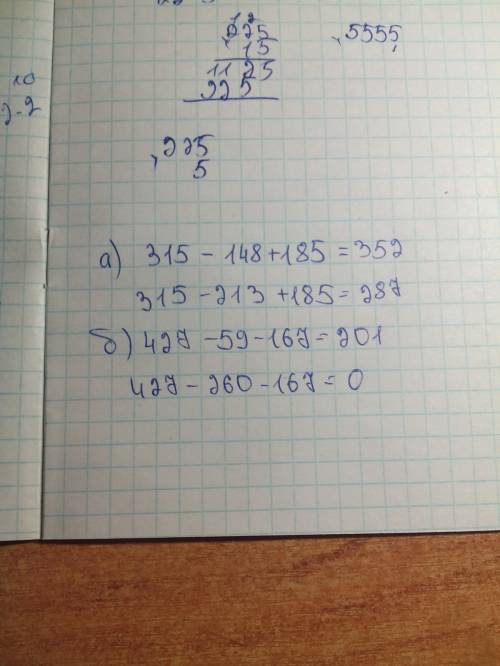 10
2-2
225
15
1125
225
5555
225
5
а) 315 - 148 + 185 = 352
315 - 213 + 185 = 287
б) 427 - 59 - 167 = 201
427 - 260 - 167 = 0